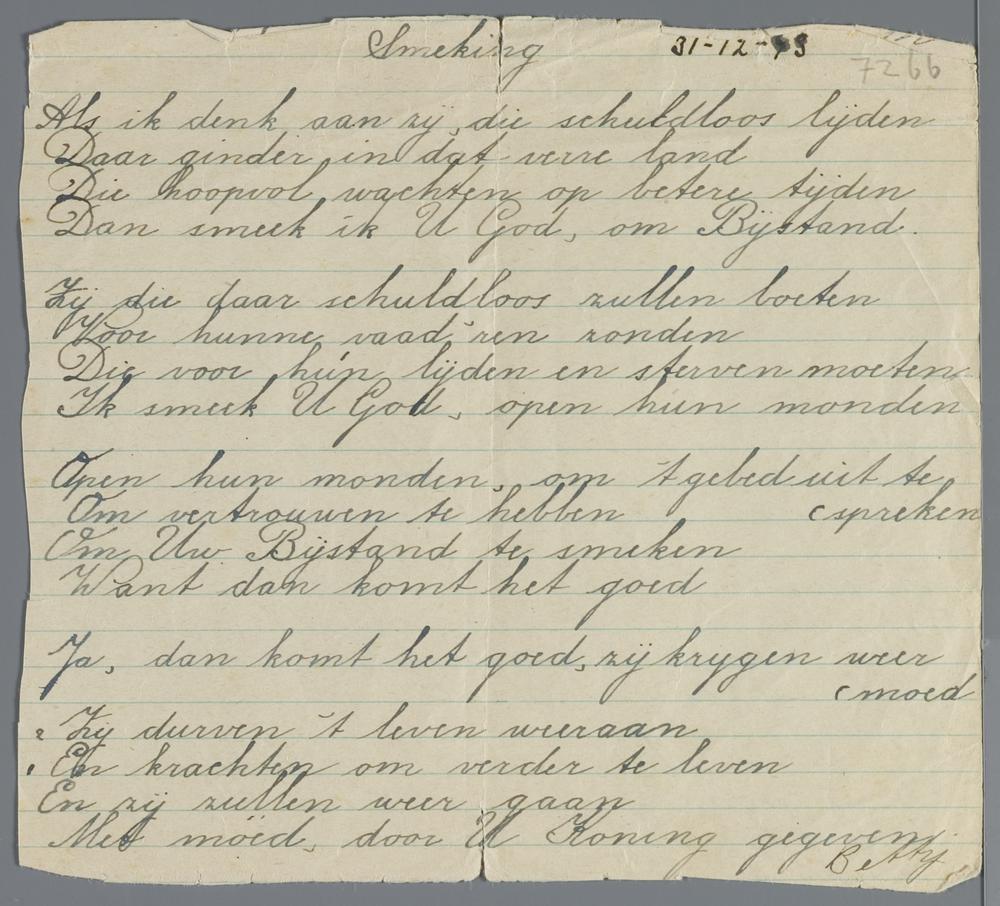 Smeking 31-12-43
7266
Als ik denk, aan zij, die schuldloos lijden
Daar ginder, in dat verre land
Die hoopvol, wachten op betere tijden
Dan smeek ik U God, om Bijstand.
Zij die daar schuldloos zullen boeten
Voor hunne vaad'ren zonden
Die voor hún, lijden en sterven moeten
Ik smeek U God, open hun monden
Open hun monden, om 't gebed uit te
Om vertrouwen te hebben (spreken
Om Uw Bijstand te smeken
Want dan komt het goed
Ja, dan komt het goed, zij krygen weer
(moed
2 Zij durven 't leven weeraan
1 En krachten om verder te leven
En zij zullen weer gaan
Met moed, door U Koning gegeven.
Betty